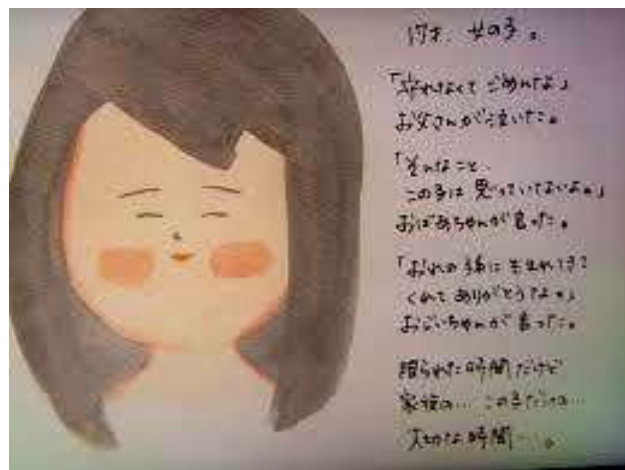 17才 女の子。
「守れなくて ごめんな」
お父さんが泣いた。
「そんなこと、
この子は 思っていないよ。」
おばあちゃんが言った。
「おれの孫に 生まれてきて
くれて ありがとうなぁ。」
おじいちゃんが言った。
限られた時間だけど
家族の… この子だけの…
大切な時間…。